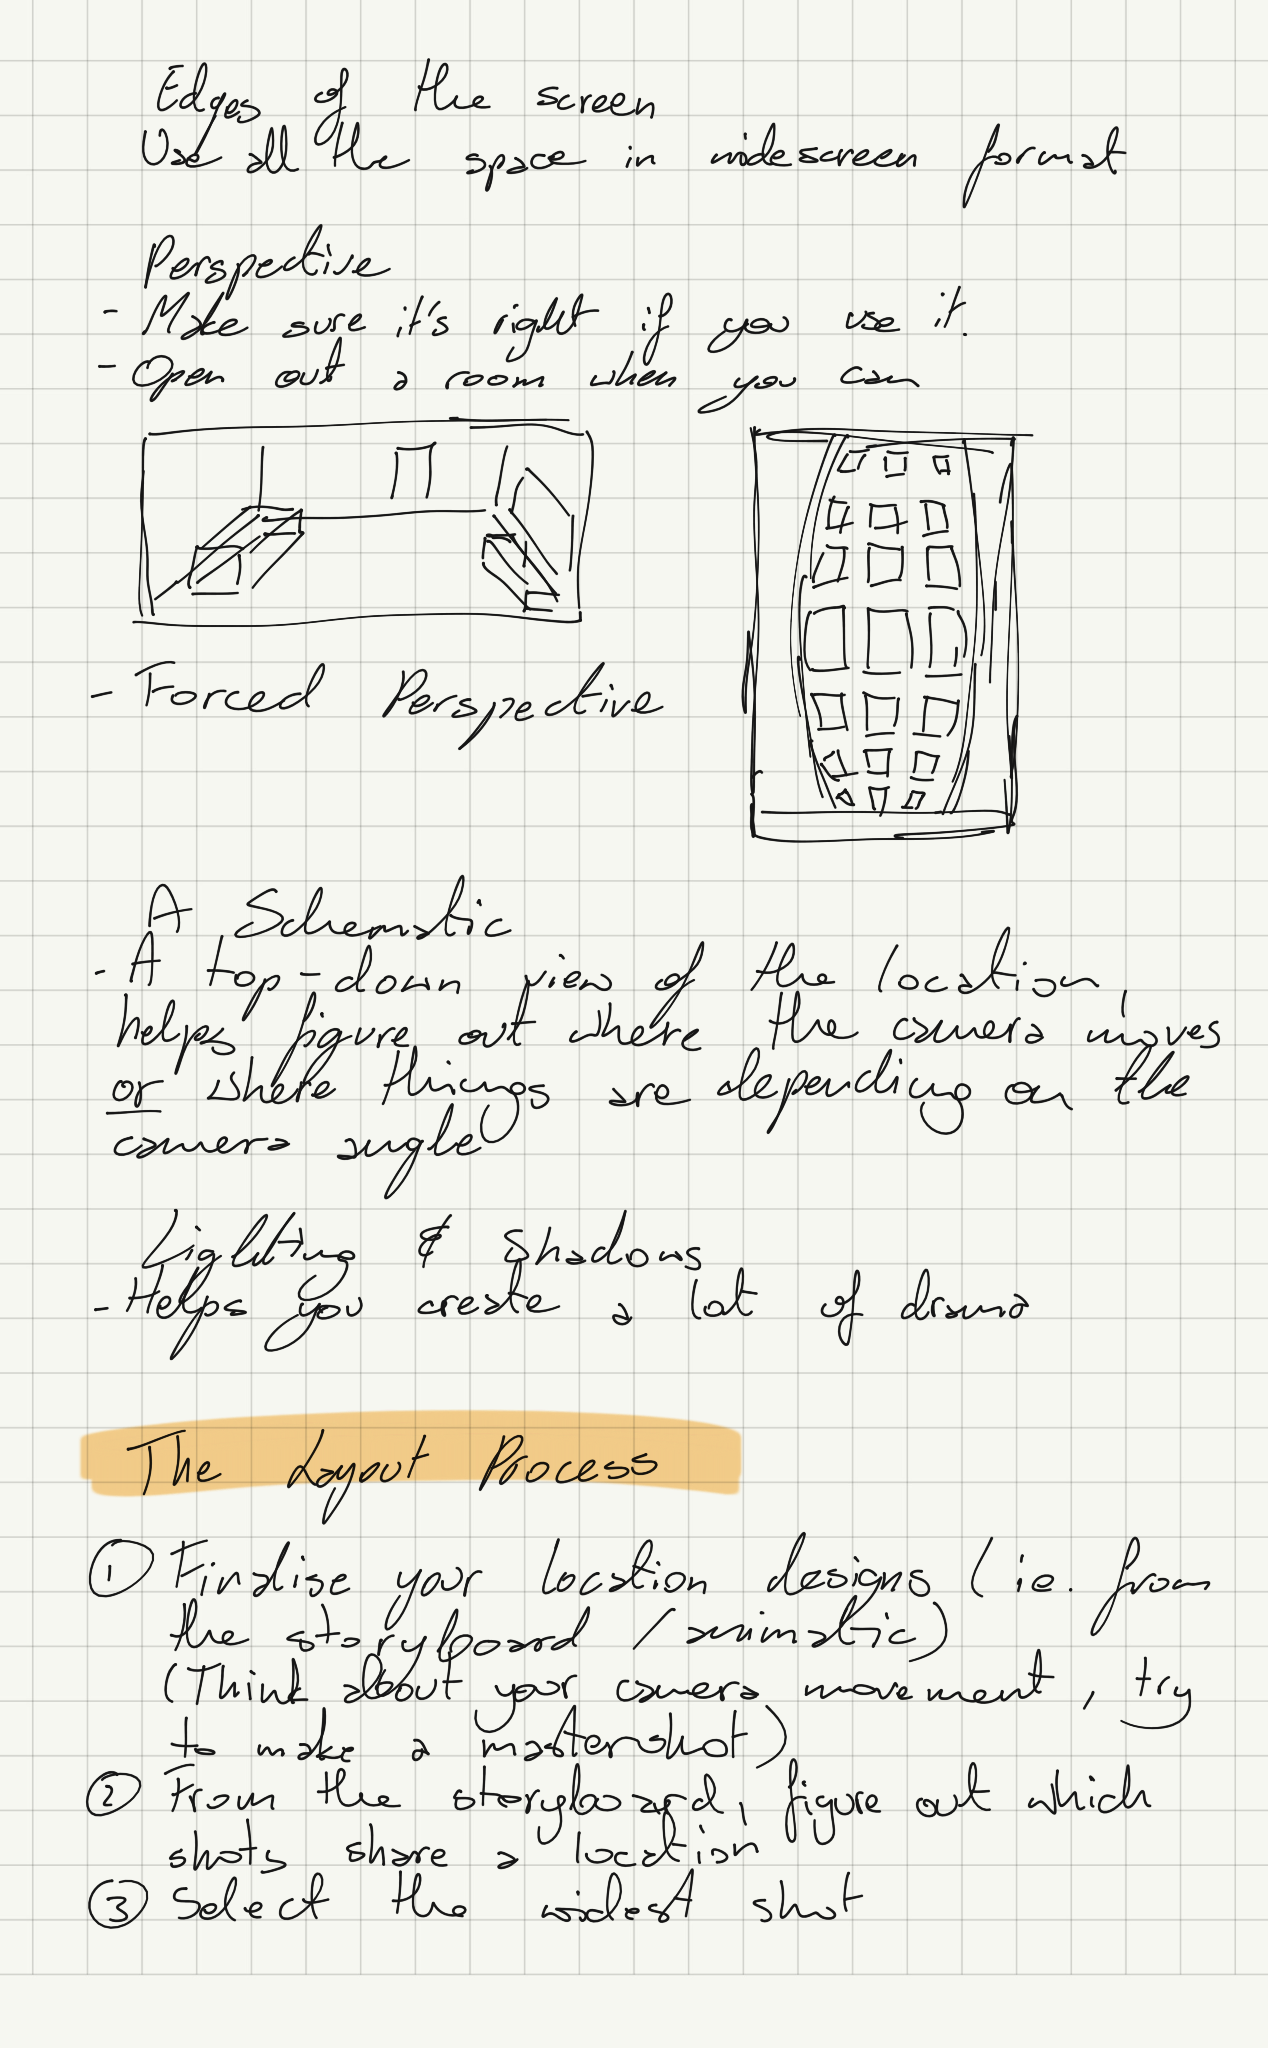 Edges of the screen
Use all the space in widescreen format
Perspective
- Make sure it's right if you use it.
- Open out a room when you can
- Forced Perspective
A Schematic
- A top-down view of the location,
helps figure out where the camera moves
or where things are depending on the
camera angle
Lighting & Shadows
- Helps you create a lot of drama
The Layout Process
① Finalise your location designs (ie. from
the storyboard / animatic)
(Think about your camera movement, try
to make a mastershot)
② From the storyboard, figure out which
shots share a location
③ Select the widest shot